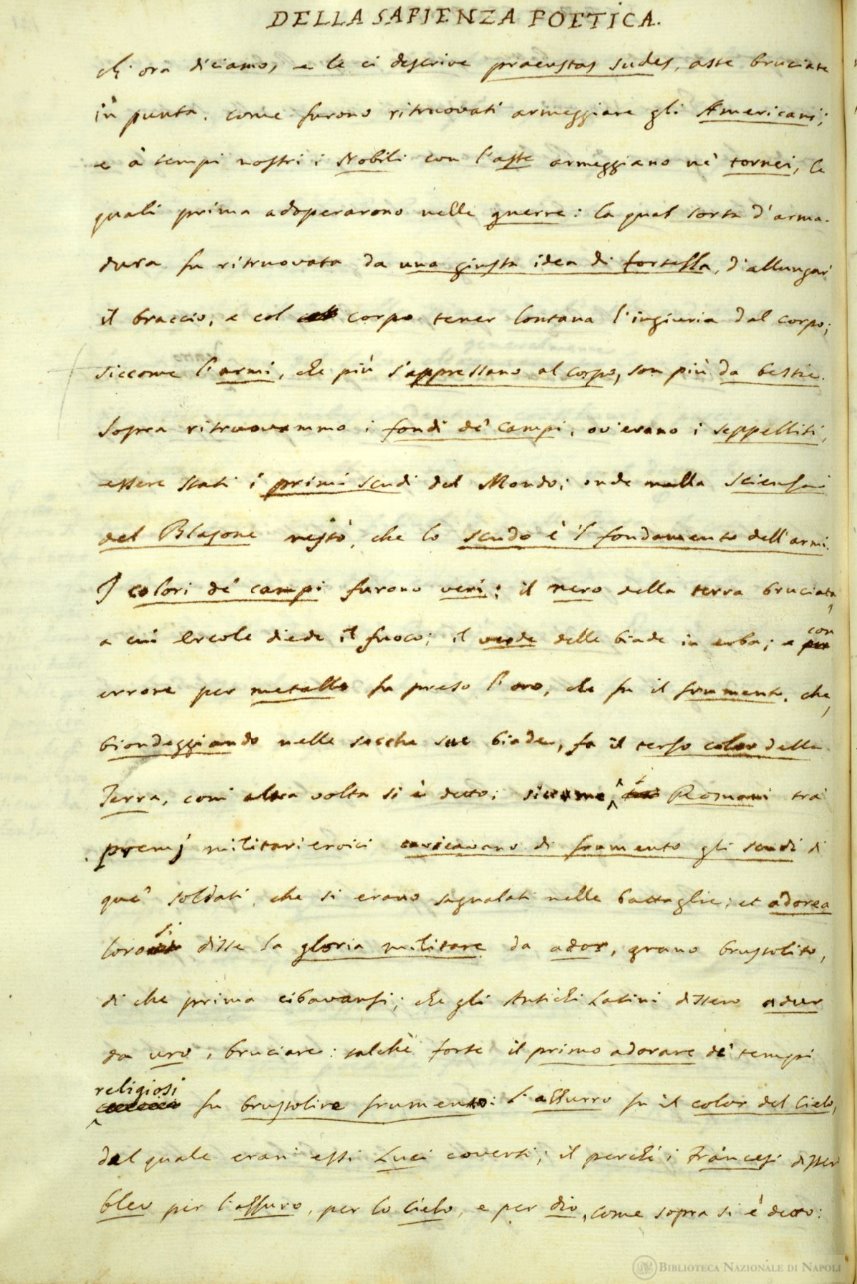 DELLA SAPIENZA POETICA.
ch' ora diciamo, e le ci descrive praeustas sudes, aste bruciate
in punta, come furono ritruovati armeggiare gli Americani;
e a' tempi nostri i Nobili con l'aste armeggiano ne' tornei, le
quali prima adoperarono nelle guerre: la qual sorta d'arma-
dura fu ritruovata da una giusta idea di fortezza, d'allungar
il braccio, e col corpo tener lontana l'ingiuria dal corpo;
siccome l'armi, che più s'appressano al corpo, son più da bestie.
Sopra ritruovammo i fondi de' campi, ov'erano i seppelliti,
essere stati i primi scudi del Mondo; onde nella scienza
del Blasone restò, che lo scudo è 'l fondamento dell'armi.
I colori de' campi furono veri: il nero della terra bruciata,
a cui Ercole diede il fuoco; il verde delle biade in erba; e con
errore per metallo fu preso l'oro, che fu il frumento, che,
biondeggiando nelle secche sue biade, fa il terzo color della
Terra, com' altra volta si è detto; siccome i Romani tra'
premj militari eroici caricavano di frumento gli scudi di
que' soldati, che si erano segnalati nelle battaglie; et adorea
loro si disse la gloria militare da ador, grano brustolito,
di che prima cibavansi; che gli Antichi Latini dissero adur
da uro, bruciare: talchè forse il primo adorare de' tempi
religiosi fu brustolire frumento: l'azzurro fu il color del Cielo,
dal quale eran essi Luci coverti; il perchè i Francesi disser
bleu per l'azzuro, per lo Cielo, e per dio, come sopra si è detto:
BIBLIOTECA NAZIONALE DI NAPOLI